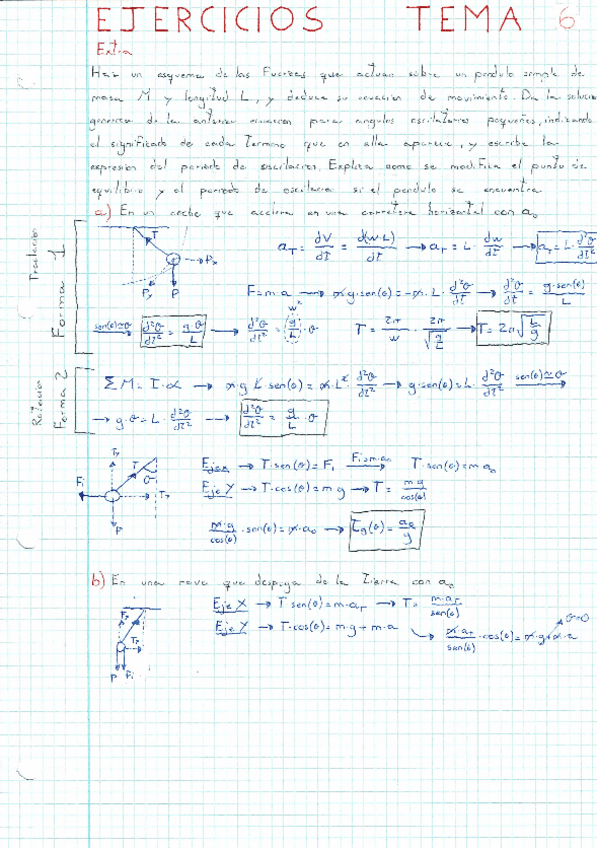 EJERCICIOS TEMA 6
Extra
Haz un esquema de las Fuerzas que actuan sobre un pendulo simple de
masa M y longitud L, y deduce su ecuacion de movimiento. Da la solucion
generica de la anterior ecuacion para angulos oscilatorios pequeños, indicando
el significado de cada Termino que en ella aparece, y escribe la
expresion del periodo de oscilacion. Explica como se modifica el punto de
equilibrio y el periodo de oscilacion si el pendulo se encuentra
a) En un coche que acelera en una carretera horizontal con a₀
Traslacion
Forma 1
T
Pₓ
Pᵧ P
a_T = dV/dT = d(w·L)/dT → a_T = L · dw/dt → a_T = L · d²θ/dt²
F = m·a → m·g·sen(θ) = -m·L · d²θ/dt → d²θ/dt = g·sen(θ)/L
sen(θ)≃θ d²θ/dt² = g·θ/L → d²θ/dt² = (g/L)·θ w² T = 2π/w · 2π/√(g/L) → T = 2π√(L/g)
Rotacion
Forma 2
ΣM = I·α → m·g·L·sen(θ) = m·L² · d²θ/dt² → g·sen(θ) = L · d²θ/dt² sen(θ)≃θ →
→ g·θ = L · d²θ/dt² → d²θ/dt² = g/L · θ
Fᵢ Tᵧ T θ Tₓ P
Eje X → T·sen(θ) = Fᵢ Fᵢ=m·a₀ → T·sen(θ) = m a₀
Eje Y → T·cos(θ) = m g → T = m g/cos(θ)
m·g/cos(θ) · sen(θ) = m·a₀ → Tg(θ) = a₀/g
b) En una nave que despega de la Tierra con a₀
P Fᵢ
Eje X → T sen(θ) = m·a_T → T = m·a_T/sen(θ)
Eje Y → T·cos(θ) = m·g + m·a → m·a_T/sen(θ) · cos(θ) = m·g + m·a θ=0